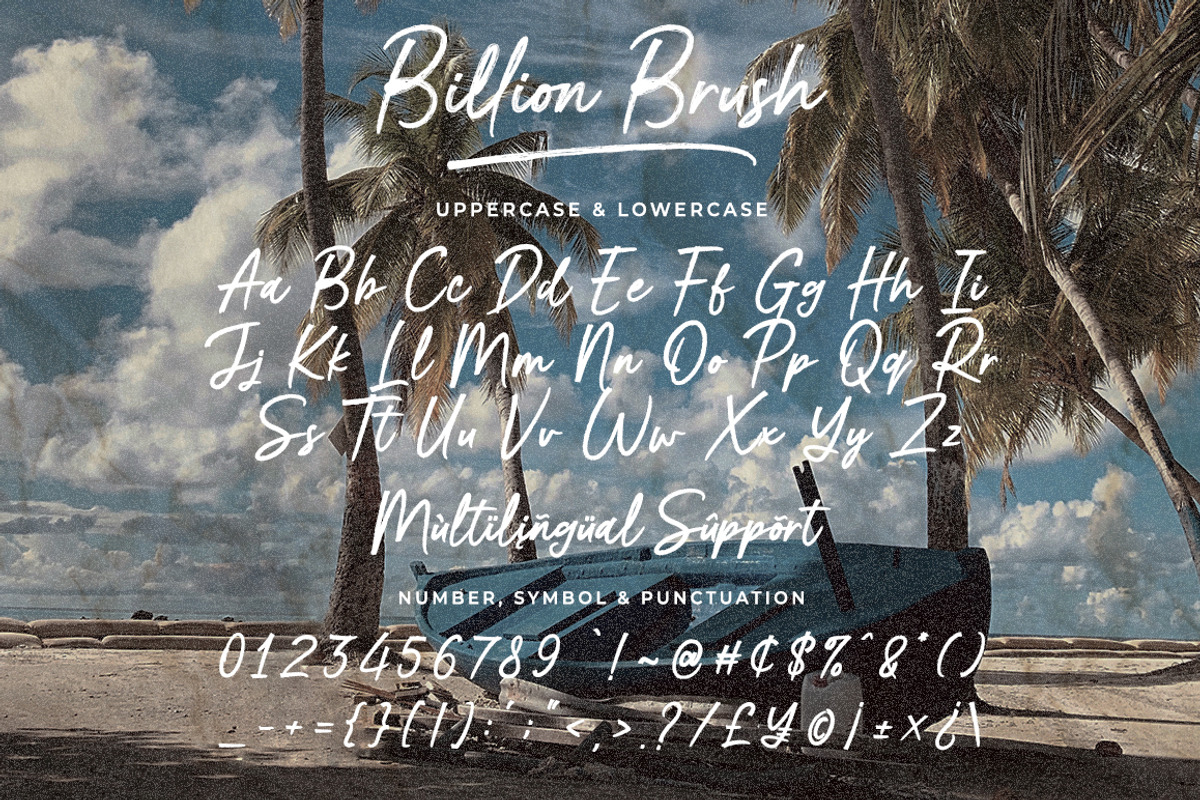 Billion Brush
UPPERCASE & LOWERCASE
Aa Bb Cc Dd Ee Ff Gg Hh Ii
Jj Kk Ll Mm Nn Oo Pp Qq Rr
Ss Tt Uu Vv Ww Xx Yy Zz
Mùltïliñgüal Sûppõrt
NUMBER, SYMBOL & PUNCTUATION
0123456789 `!~@#¢$%^&*()
_-+={}[|]:';"<,>.?/£¥©¡±×¿\